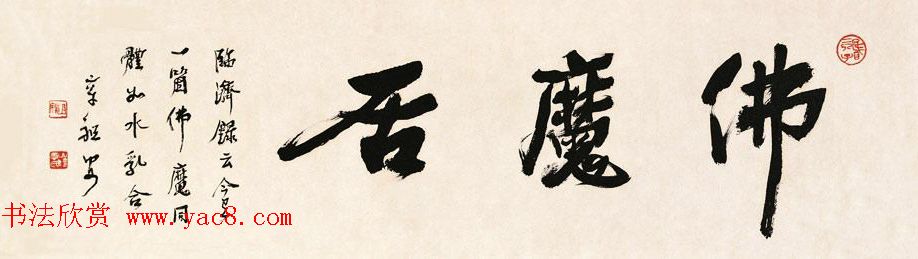 佛魔居
臨濟錄云今有
一箇佛魔同
體如水乳合
章祖安
书法欣赏 www.yac8.com